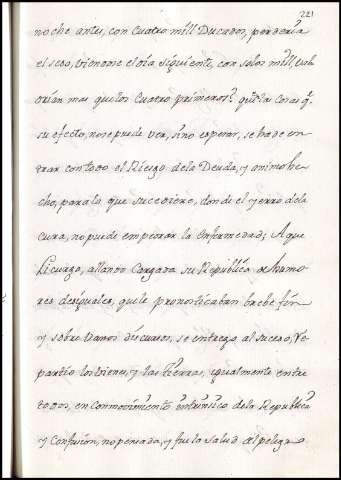 221
noche antes, con Cuatro mill Ducados, perderia
el seso, vienome el dia siguiente, con solos mill, val
drian mas que los Cuatro primeros? que la Cosa q.
su efecto, no se puede ver, sino esperar, se ha de en
trar con todo el Riesgo de la Deuda, y animo he
cho, para lo que sucediere, donde el yerro de la
cura, no puede empeorar la Enfermedad; A que
Licurgo, allando Cargada su Republica de humo
res desiguales, que le pronosticaban brebe fin
y sobre Danos discursos, se entrego al suceso, Re
partio los vienes, y las tierras, igualmente entre
todos, en Conmovimiento intrinsico de la Republica
y Confusion, no pensada, y fue la salud el peligro